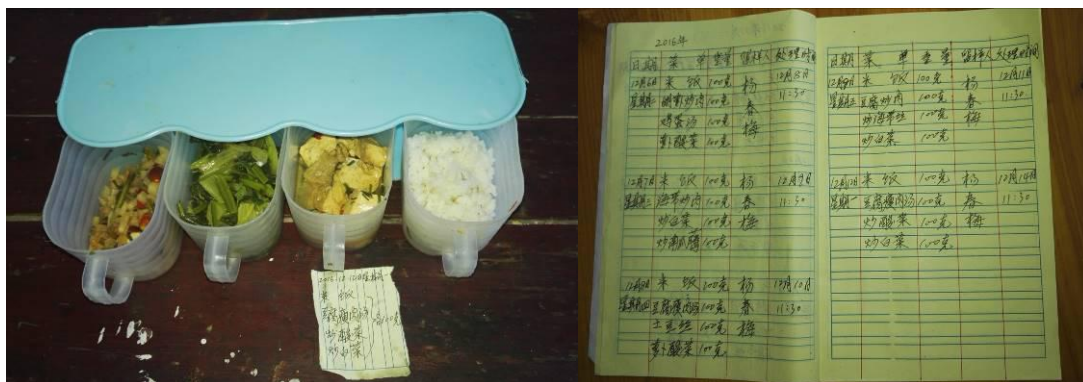 米饭
豆腐瘦肉汤
炒酸菜
炒白菜
2016年
日期 菜单 重量 留样人 处理时间
12月6日 米饭 100克 杨 12月8日
星期二 炒肉 100克 春 11:30
鸡蛋汤 100克 梅
萝卜酸菜 100克
12月7日 米饭 100克 杨 12月9日
星期三 海带炒肉 100克 春 11:30
炒白菜 100克 梅
炒南瓜 100克
12月8日 米饭 100克 杨 12月10日
星期四 豆腐瘦肉汤 100克 春 11:30
土豆丝 100克 梅
萝卜酸菜 100克
日期 菜单 重量 留样人 处理时间
12月9日 米饭 100克 杨 12月11日
星期五 豆腐炒肉 100克 春 11:30
炒海带丝 100克 梅
炒白菜 100克
12月12日 米饭 100克 杨 12月14日
星期一 豆腐瘦肉汤 100克 春 11:30
炒酸菜 100克 梅
炒白菜 100克